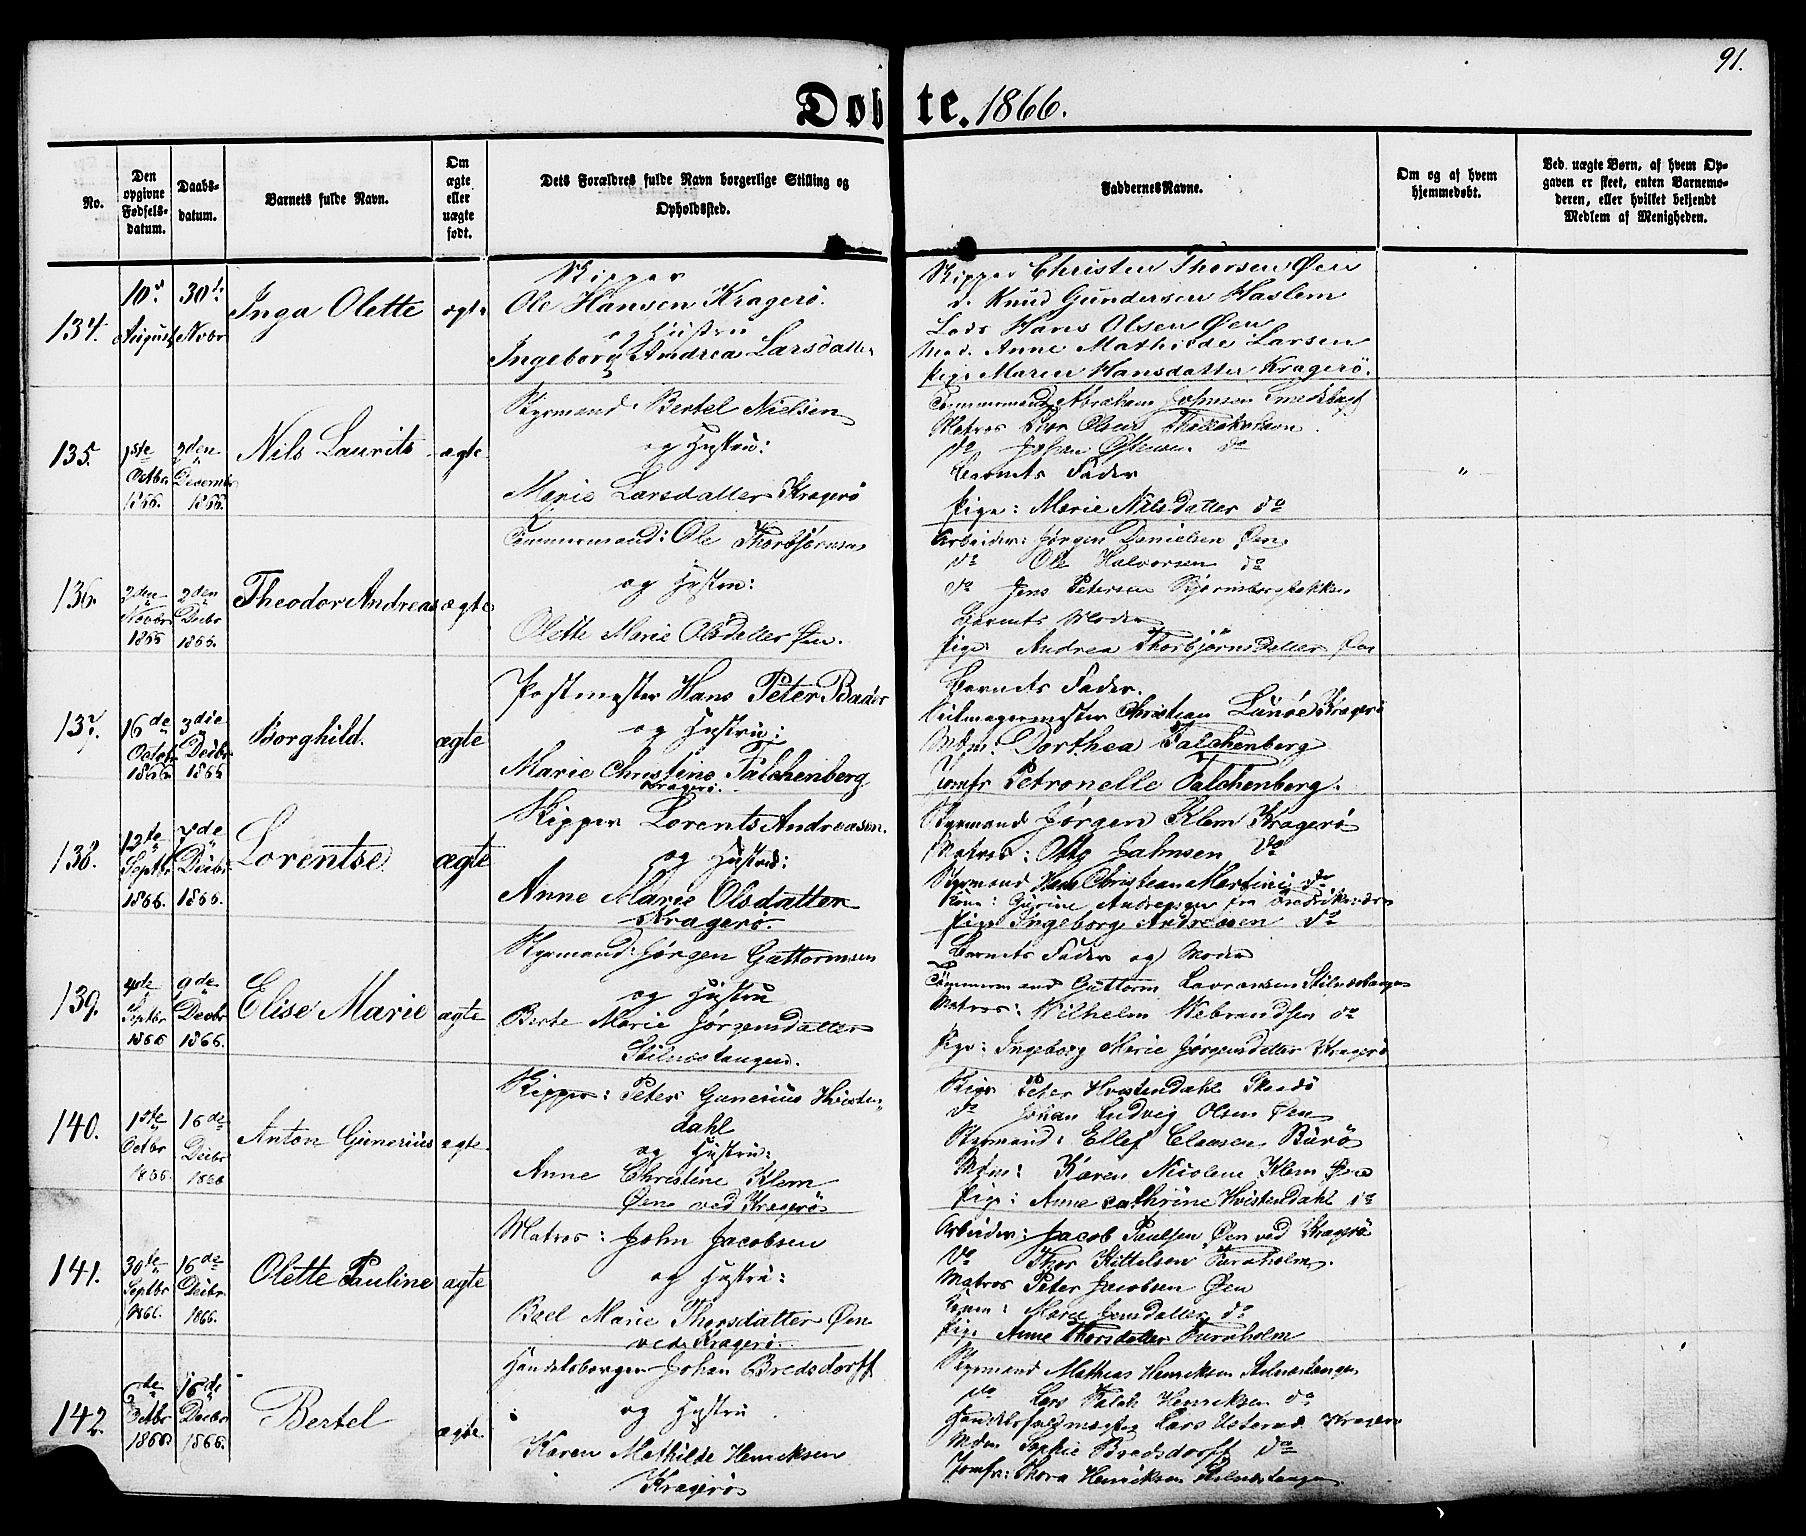 91.
Døbte. 1866.
No.
Den opgivne Fødselsdatum.
Daabsdatum.
Barnets fulde Navn.
Om ægte eller uægte født.
Dets Forældres fulde Navn borgerlige Stilling og Opholdssted.
Faddernes Navne.
Om og af hvem hjemmedøbt.
Ved uægte Børn, af hvem Opgaven er skeet, enten Barnemoderen, eller hvilket bekjendt Medlem af Menigheden.
134.
10de August
30te Novbr
Inga Olette
ægte
Skipper
Ole Hansen Kragerö.
og Hustru
Ingeborg Andrea Larsdatter
Skipper Christen Thorsen Øen
d. Knud Gundersen Haslem
Lods Hans Olsen Øen
Mad. Anne Mathilde Larsen
Pige Maren Hansdatter Kragerö.
135.
1ste Octbr 1866.
2den Decembr 1866.
Nils Laurits
ægte
Styrmand: Bertel Nielsen
og Hustru:
Marie Larsdatter Kragerö
Tømmermand Abraham Johnsen
Matros Thor Olsen
do Johan do
Barnets Fader
Pige: Marie Nilsdatter do
"
136.
2den Novbr 1866
2den Decbr 1866.
Theodor Andreas
ægte
Tømmermand: Ole Thorbjørnsen
og Hustru:
Olette Marie Olsdatter Øen.
Arbeider: Jørgen Danielsen Øen
do Ole Halvorsen do
do Jens Petersen Bjørnsbergbakken
Barnets Moder
Pige Andrea Thorbjørnsdatter Øen
137.
16de Octobr 1866
3die Decbr 1866
Borghild.
ægte
Postmester Hans Peter Baade
og Hustru:
Marie Christine Falchenberg
Kragerö.
Barnets Fader.
Christian Lunöe Kragerö
Mdm: Dorthea Falchenberg
Jomfr Petronelle Falchenberg.
138.
12te Septbr 1866.
7de Decbr 1866.
Lorentse
ægte
Skipper Lorents Andreasen.
og Hustru:
Anne Marie Olsdatter
Kragerö.
Styrmand Jørgen Klem Kragerö
Matros: Otto Jahnsen do
Styrmand Hans Christian Martini do
Kone: Gurine Andreasen fra Fredriksværn
Pige Ingeborg Andreasen do
139.
Septbr 1866
9de Decbr 1866.
Elise Marie
ægte
Styrmand: Jørgen Guttormsen
og Hustru
Berte Marie Jørgensdatter
Stilnestangen.
Barnets Fader og Moder
Tømmermand Guttorm Lavransen Stilnestangen
Matros: Wilhelm Webrandsen do
Pige: Ingeborg Marie Jørgensdatter Kragerö
140.
1ste Octbr 1866.
16de Decbr 1866
Anton Gunerius
ægte
Skipper: Peter Gunerius Hvisten-
dahl
og Hustru:
Anne Christine Klem
Øen ved Kragerö
Skipr Peter Hvistendahl
do Johan Ludvig Olsen Øen
Styrmand: Ellef Claasen Burö
Mdm: Karen Nicoline Klem Øen
Pige: Anne Cathrine Hvistendahl do
141.
30te Septbr 1866.
16de Decbr 1866.
Olette Pauline
ægte
Matros: John Jacobsen
og Hustru:
Boel Marie Thorsdatter Øen
ved Kragerö.
Arbeider: Jacob Paulsen Øen ved Kragerö
do Thor Kittelsen Furuholm.
Matros Peter Jacobsen Øen
Kone: Marie Jensdatter do
Pige Anne Thorsdatter Furuholm
142.
Octbr 1866
16de Decbr 1866.
Bertel
ægte.
Handelsborger Johan Bredsdorff
og Hustru
Karen Mathilde Henriksen
Kragerö
Styrmand Mathias Henriksen Stilnestangen
do Lars Falck Henriksen do
Handelsfuldmægtig Lars Kragerö
Mdm Sophie Bredsdorff do
Jomfr: Thora Henriksen Stilnestangen